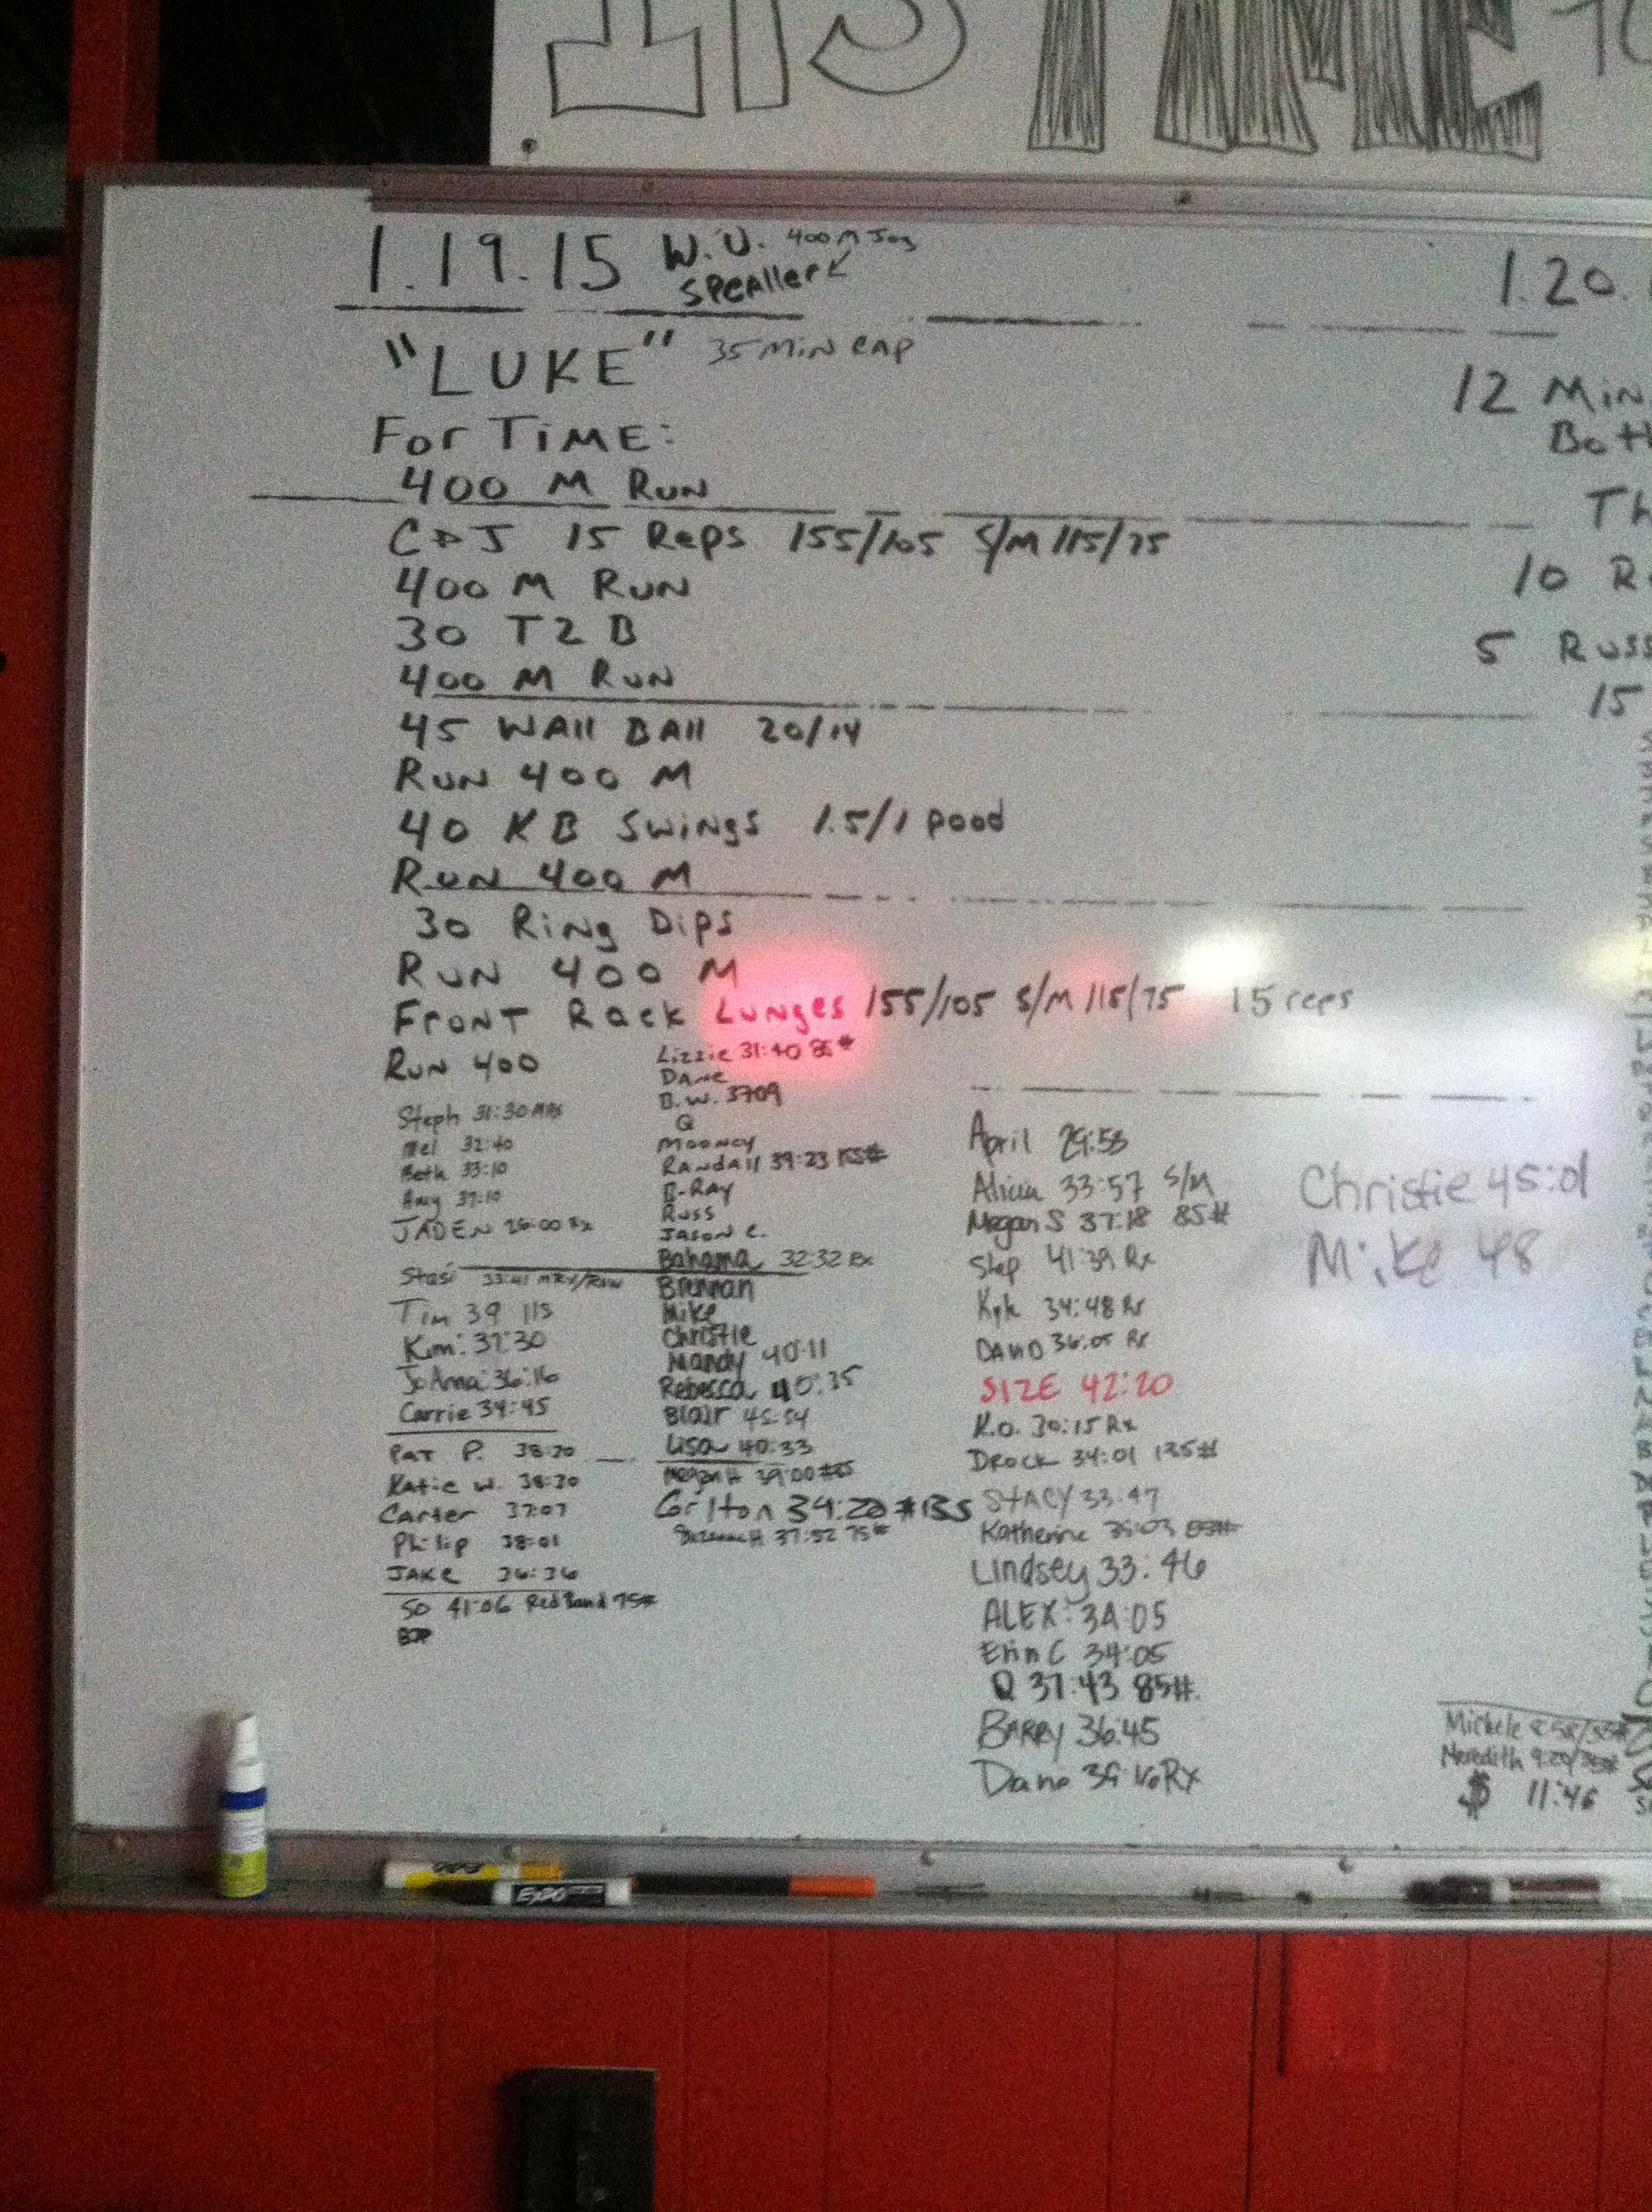 IS TIME
1.19.15 W.U. 400 M Jog
Spealler
"LUKE" 35 Min cap
For Time:
400 M Run
C&J 15 Reps 155/105 S/M 115/75
400 M Run
30 T2B
400 M Run
45 Wall Ball 20/14
Run 400 M
40 KB Swings 1.5/1 pood
Run 400 M
30 Ring Dips
Run 400 M
Front Rack Lunges 155/105 S/M 115/75 15 reps
Run 400
Steph 31:30
Mel 32:40
Beth 33:10
Amy 37:10
JADEN 26:00 Rx
Stasi 33:41
Tim 39 115
Kim: 37:30
JoAnna: 36:16
Carrie 34:45
Pat P. 38:30
Katie W. 38:30
Carter 37:07
Philip 38:01
JAKE 36:36
So 41:06 Red Band 75#
Lizzie 31:40 85#
Dane
B.W. 3709
Q
Mooney
Randall 39:23
B-Ray
Russ
Jason C.
Bahama 32:32 Rx
Brennan
Mike
Christie
Mandy 40:11
Rebecca 40:35
Blair 45:54
Lisa 40:33
Megan H 39:00
Carlton 34:20 #135
37:52 75#
April 29:58
Alicia 33:57 S/M
Megan S 37:18 85#
Step 41:39 Rx
Kyle 34:48 Rx
DAVID 36:05 Rx
SIZE 42:20
K.O. 30:15 Rx
Drock 34:01 135#
STACY 33:47
Katherine 35:03 85#
Lindsey 33:46
ALEX: 34:05
Erin C 34:05
Q 37:43 85#
BARRY 36:45
Dano 39:16 Rx
Christie 45:01
Mike 48
1.20.
12 Min
Both
Th
10 R
5 Russ
15
Michele 8:58/35#
Meredith 9:20/35#
$ 11:46
EXPO